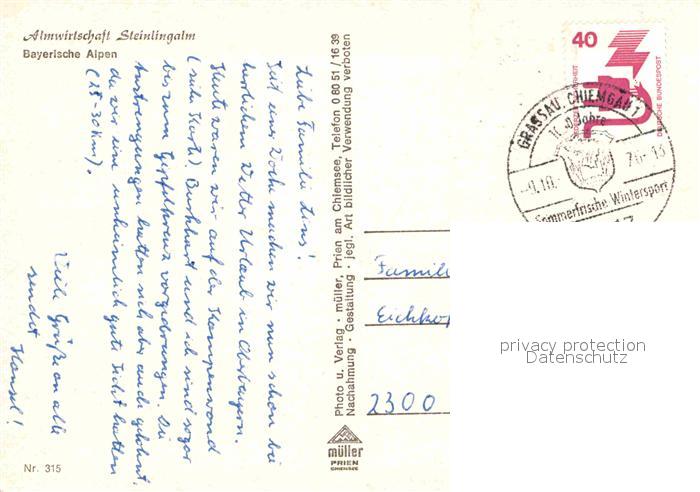 Almwirtschaft Steinlingalm
Bayerische Alpen
Liebe Familie Lens!
Seit einer Woche machen wir nun schon bei
herrlichem Wetter Urlaub in Oberbayern.
Heute waren wir auf der Kampenwand
(siehe Karte) Burkhart und ich sind sogar
bis zum Gipfelkreuz vorgedrungen. Die
Anstrengungen hatten sich aber auch gelohnt,
da wir eine unheimlich gute Sicht hatten
(25-30 km).
Viele Grüße an alle
sendet
Hansel!
Nr. 315
Photo u. Verlag · müller, Prien am Chiemsee, Telefon 0 80 51 / 16 39
Nachahmung · Gestaltung · jegl. Art bildlicher Verwendung verboten
müller
PRIEN
CHIEMSEE
40
DEUTSCHE BUNDESPOST
GRASSAU, CHIEMGAU
Jahre
-9.10. 76-13
Sommerfrische-Wintersport
Famili
Eichko
2300
privacy protection
Datenschutz